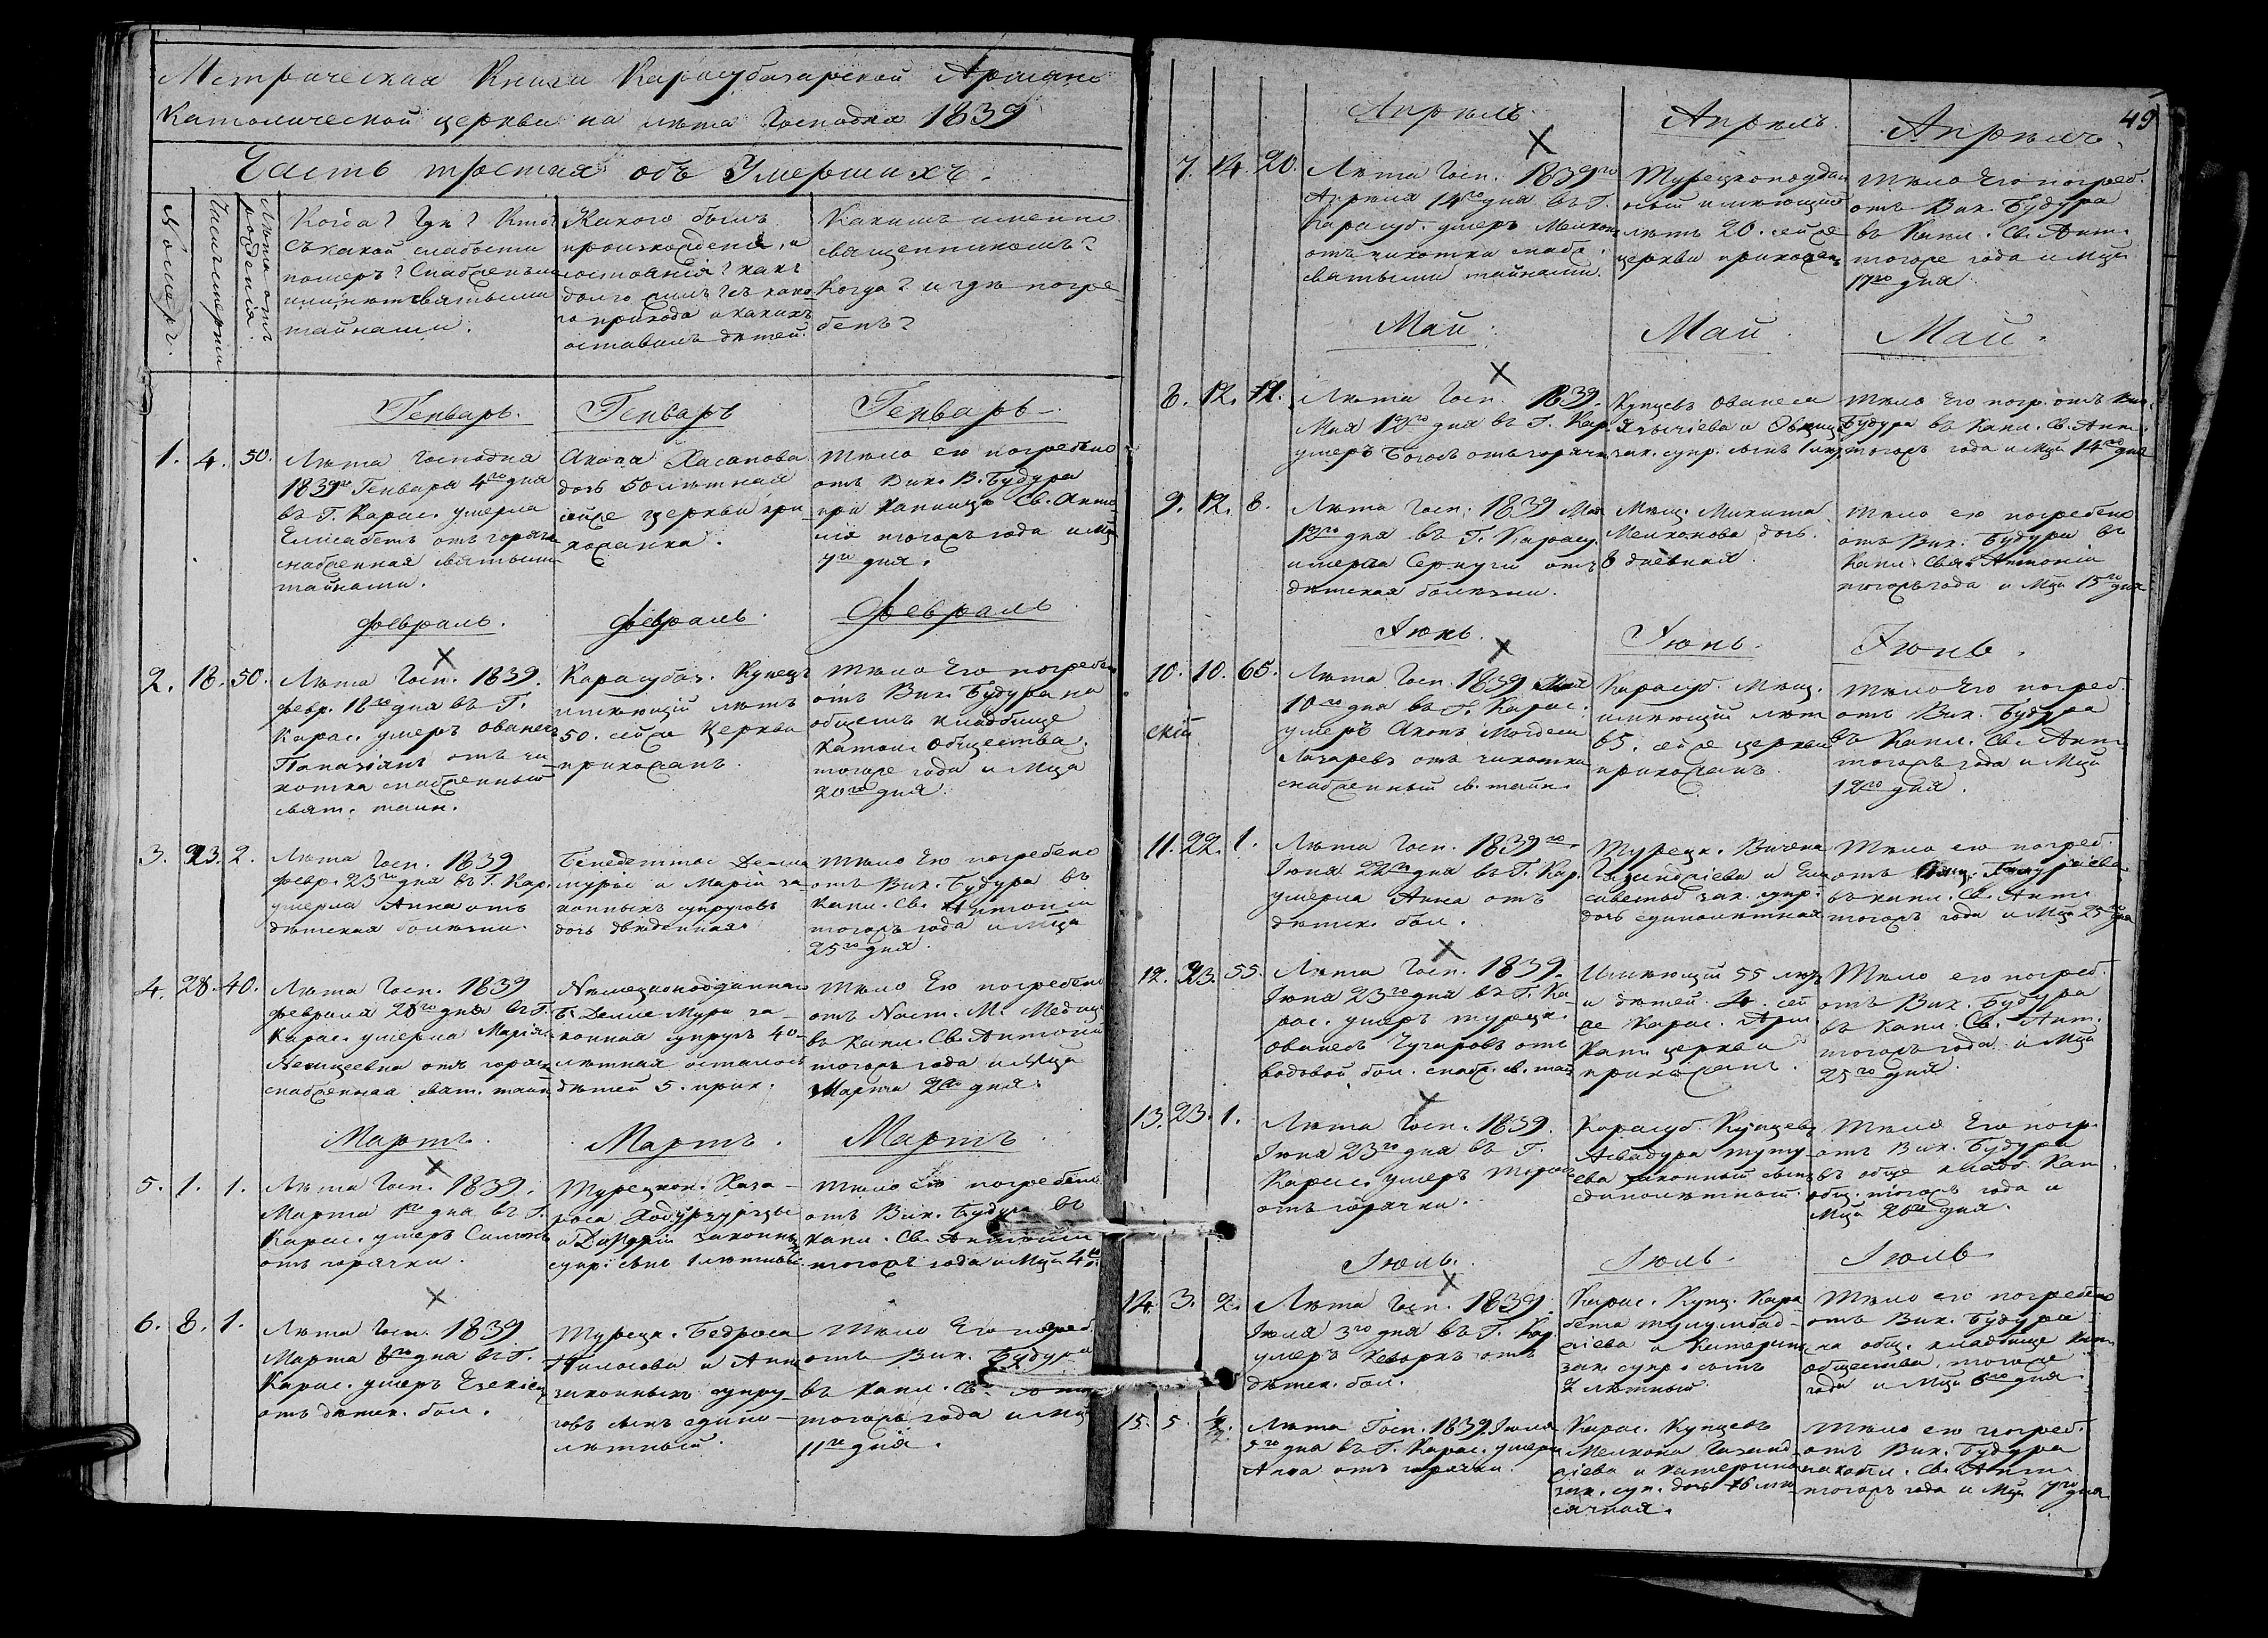 Метрическая Книга Карасубазарской Армяно
Католической церкви на лѣта Господня 1839
Часть третая объ Умершихъ.
Номеръ.
Число смерти
Лѣта отъ рожденія.
Когда? Гдѣ? Кто?
Съ какой слабости
померъ? Снабженъ ли
или нѣтъ святыми
тайнами.
Какого былъ
произхожденія, и
состоянія? какъ
долго жилъ? съ како
го прихода и какихъ
оставилъ дѣтей.
Какимъ именно
священникомъ?
Когда? и гдѣ погре-
бенъ?
Генварь. Генварь Генварь
1. 4. 50.
Лѣта Господня
1839го Генваря 4го дня
въ Г. Карас. умерла
Елисабетъ отъ горячк
снабженная святыми
тайнами.
Акопа Хасапова
дочь 50 лѣтная
сейже церкви при
хожанка.
Тѣло ею погребено
отъ Вик. В. Будура
при капищѣ Св. Анто
нія тогожъ года и Мца
7го дня.
Февраль. Февраль. Февраль
2. 18. 50.
Лѣта Госп. 1839.
Февр. 18го дня въ Г.
Карас. умеръ Ованесъ
Папазіянъ отъ чи
хотка снабженный
свят. тайн.
Карасубаз. Купецъ
имѣющій лѣтъ
50. сейже Церкви
прихожанъ.
Тѣло Его погребен
отъ Вик. Будура на
общемъ кладбище
Катол. Общества.
тогоже года и Мца
20го дня.
3. 23. 2.
Лѣта Госп. 1839
Февр. 23го дня въ Г. Кар.
умерла Анна отъ
дѣтская болѣзни.
Бенедеттос Делла
муріе и Маріи за
конныхъ супруговъ
дочь
Тѣло Ею погребено
отъ Вик. Будура въ
капл. Св. Антонія
тогожъ года и Мца
25го дня.
4. 28. 40.
Лѣта Госп. 1839
Февраля 28го дня въ Г.
Карас. умерла Марія
отъ горяч
снабженная свят. тайн
Б. Делле Мури за-
конная супруг. 40-
лѣтная осталось
дѣтей 5. прих.
Тѣло Ею погребено
отъ Наст. М. Медац
въ капл. Св. Антонія
тогожъ года и Мца
Марта 2го дня.
Мартъ. Мартъ. Мартъ
5. 1. 1.
Лѣта Госп. 1839.
Марта 1го дня въ Г.
Карас. умеръ Симонъ
отъ горячки.
Турецкоп. Каза-
роса
и законн
супр. сынъ 1 лѣтный.
Тѣло Ею погребено
отъ Вик. Будура въ
капл. Св. Антонія
тогожъ года и Мца 4го
6. 8. 1.
Лѣта Госп. 1839
Марта 8го дня въ Г.
Карас. умеръ Езекіел
отъ дѣтск. бол.
Турецк. Бедроса
и Анны
законныхъ супру-
говъ сынъ едино-
лѣтный.
Тѣло Его погреб.
отъ Вик. Будура
въ капл. Св. Ант
тогожъ года и Мца
11го дня.
49
Апрѣль. Апрѣль. Апрѣль.
7. 14. 20.
Лѣта Госп. 1839го
Апрѣля 14го дня въ Г.
Карасуб. умеръ Мелкон
отъ чихотка снабж.
святыми тайнами.
Турецкоподдан
ный имѣющій
лѣтъ 20. сейже
церкви прихожанъ
Тѣло Его погреб.
отъ Вик. Будура
въ Капл. Св. Ант.
тогоже года и Мца
17го дня.
Май. Май. Май.
8. 12. 12.
Лѣта Госп. 1839.
Мая 12го дня въ Г. Кар.
умеръ Богосъ отъ горячк
Купцевъ Ованеса
Языгіева и
зак. супр. сынъ
Тѣло Его погр. отъ Вик.
Будура въ Капл. Св. Ант.
тогожъ года и Мца 14го дня
9. 12. 8.
Лѣта Госп. 1839 Мая
12го дня въ Г. Карасу.
умерла отъ
дѣтская болѣзни.
Мѣщ. Микита
Мелконова дочь.
8 дневная.
Тѣло ею погребено
отъ Вик. Будура въ
Капл. Свят. Антонія
тогожъ года и Мца 15го дня
Іюнь. Іюнь. Іюнь.
10. 10. 65.
Лѣта Госп. 1839
10го дня въ Г. Карас.
умеръ Акопъ Могдеси
Лазаревъ отъ чихотки
снабженный св. тайн.
скій
Карасуб. Мѣщ.
имѣющій лѣт
65. сейже церкви
прихожанъ.
Тѣло Его погреб.
отъ Вик. Будура
въ Капл. Св. Ант.
тогожъ года и Мца
12го дня.
11. 22. 1.
Лѣта Госп. 1839го
Іюня 22го дня въ Г. Кар.
умерла Анна отъ
дѣтск. бол.
Турецк.
и Ели
саветы зак. супр.
дочь единолѣтная
Тѣло ею погреб.
отъ
въ капл. Св. Ант.
тогожъ года и Мца 25го дня
12. 23. 55.
Лѣта Госп. 1839.
Іюня 23го дня въ Г. Ка-
рас. умеръ турецк.
Ованесъ Чугаровъ отъ
водовой бол. снабж. св. тай
Имѣющій 55 лѣт
и дѣтей 4. сей
же Карас. Арм
Кат. церкви
прихожанъ.
Тѣло его погреб.
отъ Вик. Будура
въ капл. Св. Ант.
тогожъ года и Мца
25го дня.
13. 23. 1.
Лѣта Госп. 1839.
Іюня 23го дня въ Г.
Карас. умеръ
отъ горячки.
Карасуб. Купцевъ
Асвадура туту-
ева законный сынъ
единолѣтной.
Тѣло Его погр.
отъ Вик. Будура
въ обще кладб. Кат
общ. тогожъ года и
Мца 26го дня.
Іюль. Іюль. Іюль
14. 3. 2.
Лѣта Госп. 1839.
Іюля 3го дня въ Г. Кар.
умеръ Кеворкъ отъ
дѣтск. бол.
Карас. Купц. Кара
бета тулумбад-
жіева и Катерины
зак. супр. сынъ
2 лѣтный.
Тѣло его погребено
отъ Вик. Будура
на общ. кладбище Кат.
общества, тогоже
года и Мца 6го дня.
15. 5. ½.
Лѣта Госп. 1839. Іюля
5го дня въ Г. Карас. умерл
Анна отъ горячки.
Карас. Купцевъ
Мелкона Газанд
жіева и Катерины
зак. суп. дочь 6 мѣ-
сячная.
Тѣло ею погреб.
отъ Вик. Будура
на капл. Св. Ант.
тогожъ года и Мца 7го дня.